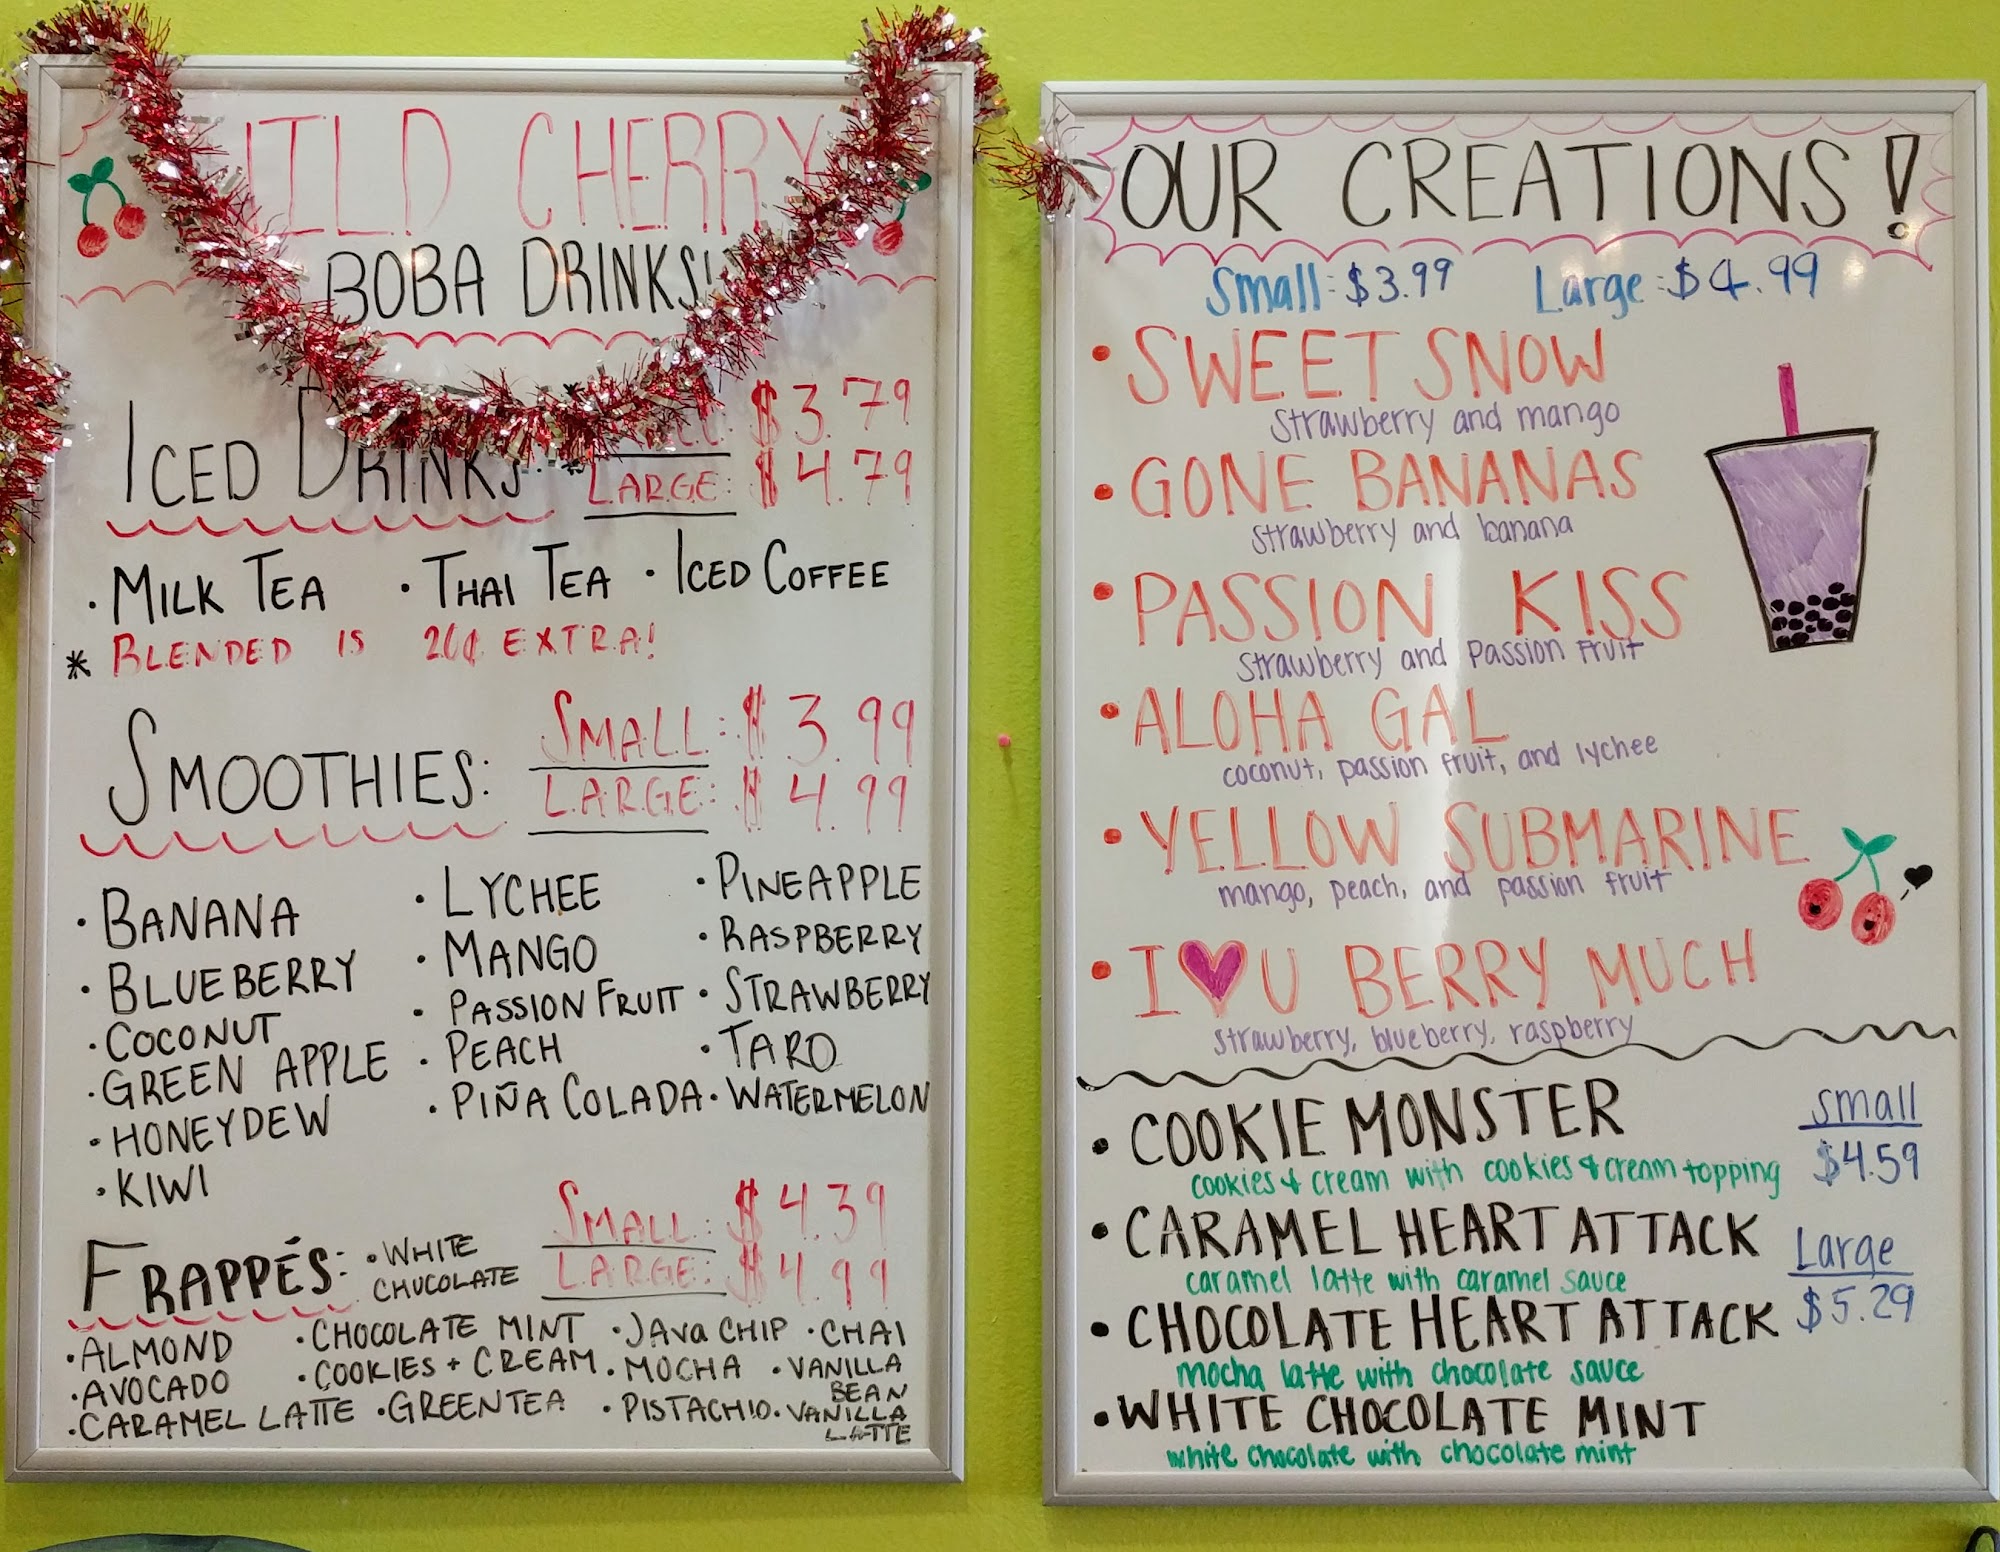 ILD CHERRY
BOBA DRINKS!
ICED DRINKS: $3.79
LARGE: $4.79
• MILK TEA • THAI TEA • ICED COFFEE
* BLENDED IS 20¢ EXTRA!
SMOOTHIES: SMALL: $3.99
LARGE: $4.99
• BANANA
• BLUEBERRY
• COCONUT
• GREEN APPLE
• HONEYDEW
• KIWI
• LYCHEE
• MANGO
• PASSION FRUIT
• PEACH
• PIÑA COLADA
• PINEAPPLE
• RASPBERRY
• STRAWBERRY
• TARO
• WATERMELON
FRAPPÉS: SMALL: $4.39
LARGE: $4.99
• WHITE
CHUCOLATE
• ALMOND
• AVOCADO
• CARAMEL LATTE
• CHOCOLATE MINT
• COOKIES + CREAM
• GREEN TEA
• JAVA CHIP
• MOCHA
• PISTACHIO
• CHAI
• VANILLA
BEAN
• VANILLA
LATTE
OUR CREATIONS!
Small: $3.99 Large: $4.99
• SWEET SNOW
strawberry and mango
• GONE BANANAS
strawberry and banana
• PASSION KISS
strawberry and passion fruit
• ALOHA GAL
coconut, passion fruit, and lychee
• YELLOW SUBMARINE
mango, peach, and passion fruit
• I ♥ U BERRY MUCH
strawberry, blueberry, raspberry
• COOKIE MONSTER
cookies & cream with cookies & cream topping
• CARAMEL HEART ATTACK
caramel latte with caramel sauce
• CHOCOLATE HEART ATTACK
mocha latte with chocolate sauce
• WHITE CHOCOLATE MINT
white chocolate with chocolate mint
small
$4.59
Large
$5.29